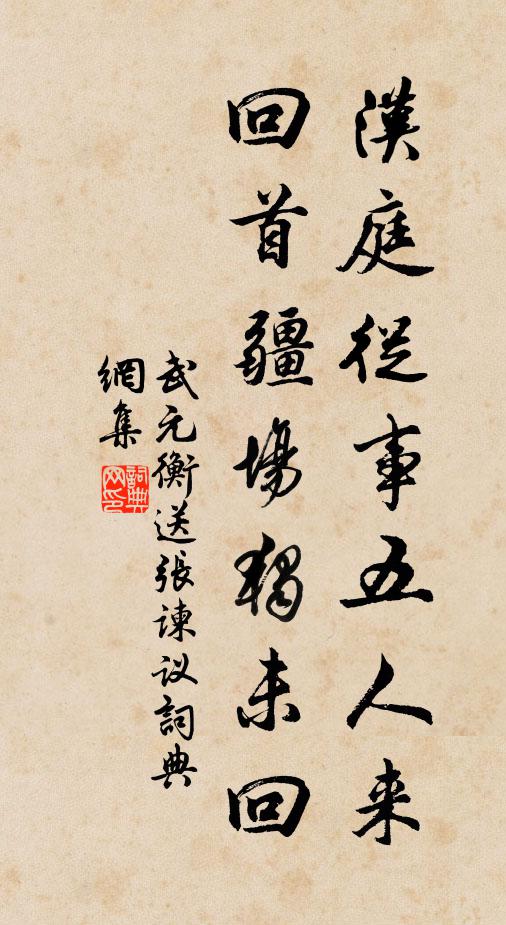 漢庭從事五人来
回首疆場獨未回
武元衡送張諫议詞典
網集
詞典网印